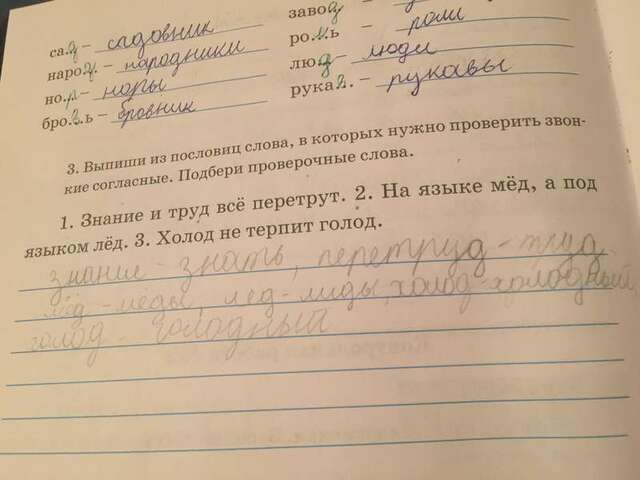 са.д – садовник
заво д
наро д. – народники
ро.л.ь – роли
но.р – норы
лю д – люди
бро.в.ь – бровник
рука в. – рукавы
3. Выпиши из пословиц слова, в которых нужно проверить звон-
кие согласные. Подбери проверочные слова.
1. Знание и труд всё перетрут. 2. На языке мёд, а под
языком лёд. 3. Холод не терпит голод.
знание - знать, перетруд - труд,
мёд - мёды, лед - лиды, холод - холодный,
голод - голодный